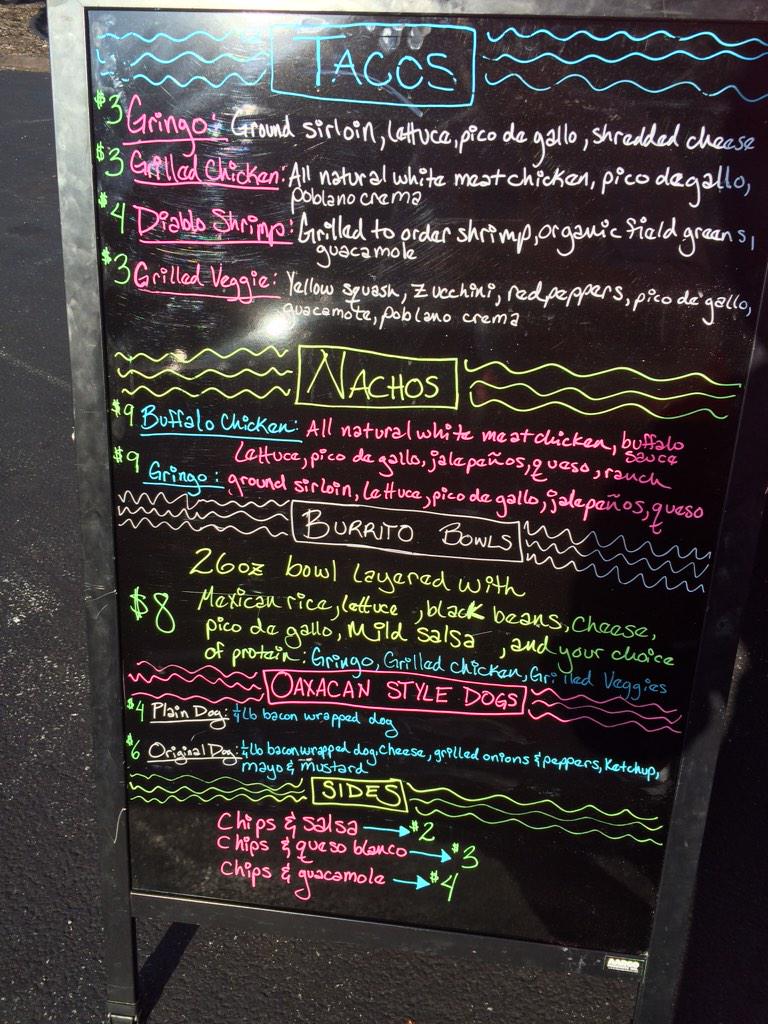 TACOS
$3 Gringo: Ground sirloin, lettuce, pico de gallo, shredded cheese
$3 Grilled Chicken: All natural white meat chicken, pico de gallo,
poblano crema
$4 Diablo Shrimp: Grilled to order shrimp, organic field greens,
guacamole
$3 Grilled Veggie: Yellow squash, zucchini, red peppers, pico de gallo,
guacamole, poblano crema
NACHOS
$9 Buffalo Chicken: All natural white meat chicken, buffalo
sauce
lettuce, pico de gallo, jalepeños, queso, ranch
$9 Gringo: ground sirloin, lettuce, pico de gallo, jalepeños, queso
BURRITO BOWLS
26oz bowl layered with
$8 Mexican rice, lettuce, black beans, cheese,
pico de gallo, Mild salsa, and your choice
of protein: Gringo, Grilled chicken, Grilled Veggies
OAXACAN STYLE DOGS
$4 Plain Dog: 1/4 lb bacon wrapped dog
$6 Original Dog: 1/4 lb bacon wrapped dog, cheese, grilled onions & peppers, Ketchup,
mayo & mustard
SIDES
Chips & salsa → $2
Chips & queso blanco → $3
Chips & guacamole → $4
AARCO